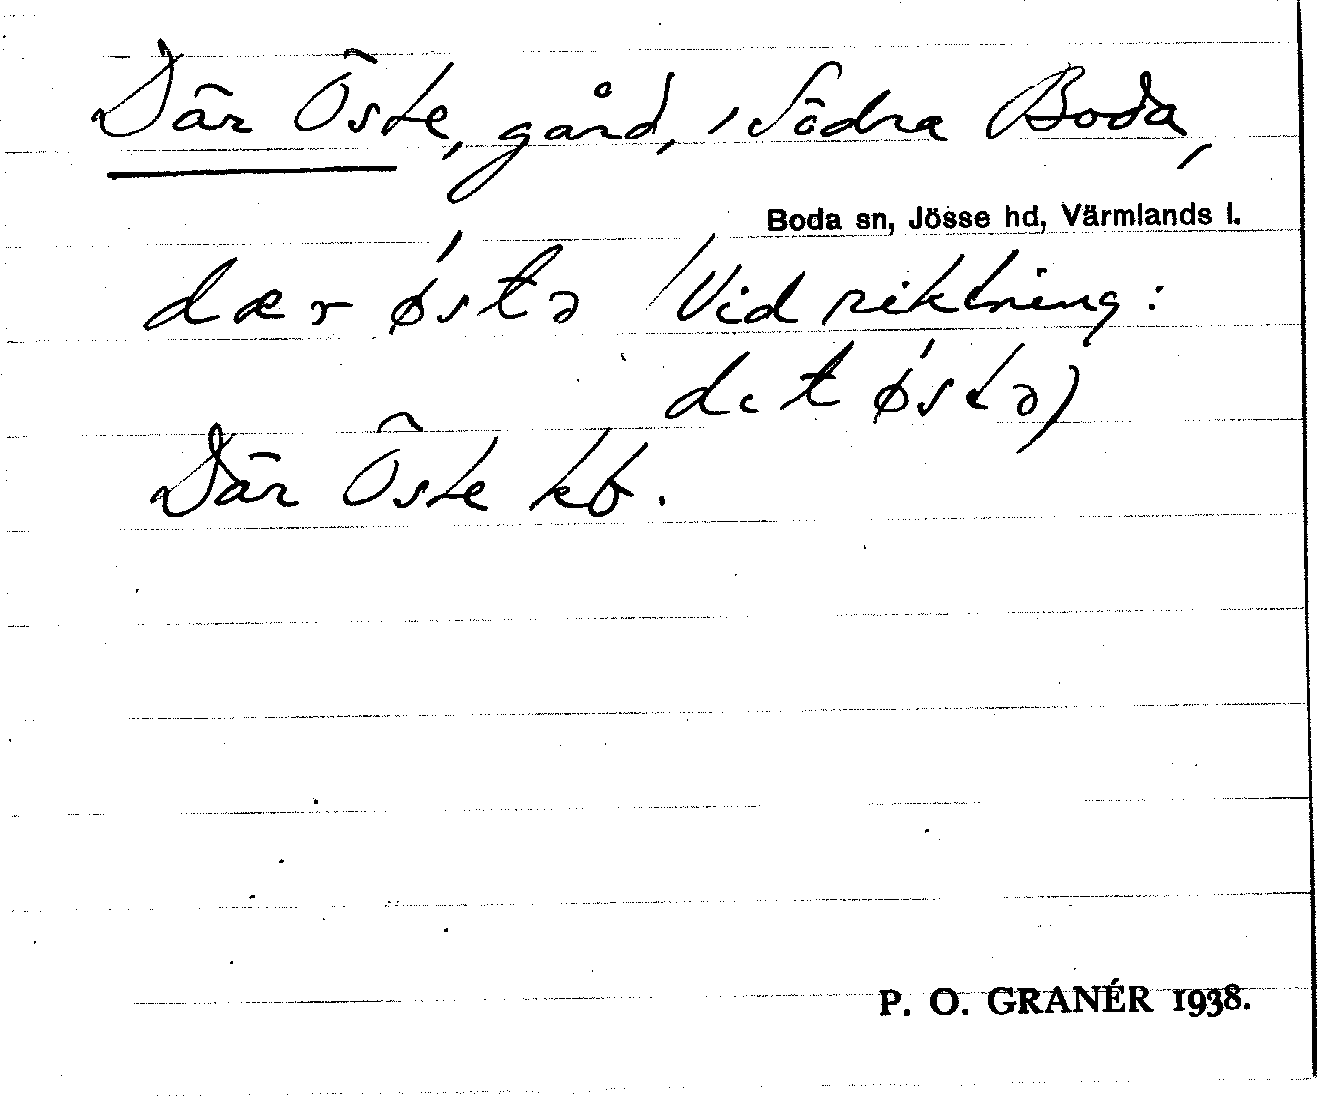 Där Öste, gård, Södra Boda,
Boda sn, Jösse hd, Värmlands l.
dær ǿstə (Vid riktning:
det ǿstə)
Där Öste kb.
P. O. GRANÉR 1938.